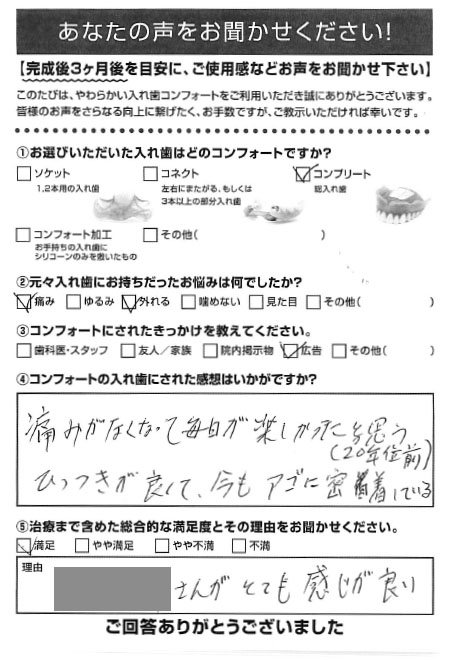 あなたの声をお聞かせください!
【完成後3ヶ月後を目安に、ご使用感などお声をお聞かせ下さい】
このたびは、やわらかい入れ歯コンフォートをご利用いただき誠にありがとうございます。
皆様のお声をさらなる向上に繋げたく、お手数ですが、ご教示いただければ幸いです。
①お選びいただいた入れ歯はどのコンフォートですか?
ソケット
1,2本用の入れ歯
コネクト
左右にまたがる、もしくは
3本以上の部分入れ歯
コンプリート
総入れ歯
コンフォート加工
お手持ちの入れ歯に
シリコーンのみを敷いたもの
その他( )
②元々入れ歯にお持ちだったお悩みは何でしたか?
痛み ゆるみ 外れる 噛めない 見た目 その他( )
③コンフォートにされたきっかけを教えてください。
歯科医・スタッフ 友人/家族 院内掲示物 広告 その他( )
④コンフォートの入れ歯にされた感想はいかがですか?
痛みがなくなって毎日が楽しかったと思う
(20年位前)
ひっつきが良くて、今もアゴに密着している
⑤治療まで含めた総合的な満足度とその理由をお聞かせください。
満足 やや満足 やや不満 不満
理由
さんがとても感じが良い
ご回答ありがとうございました